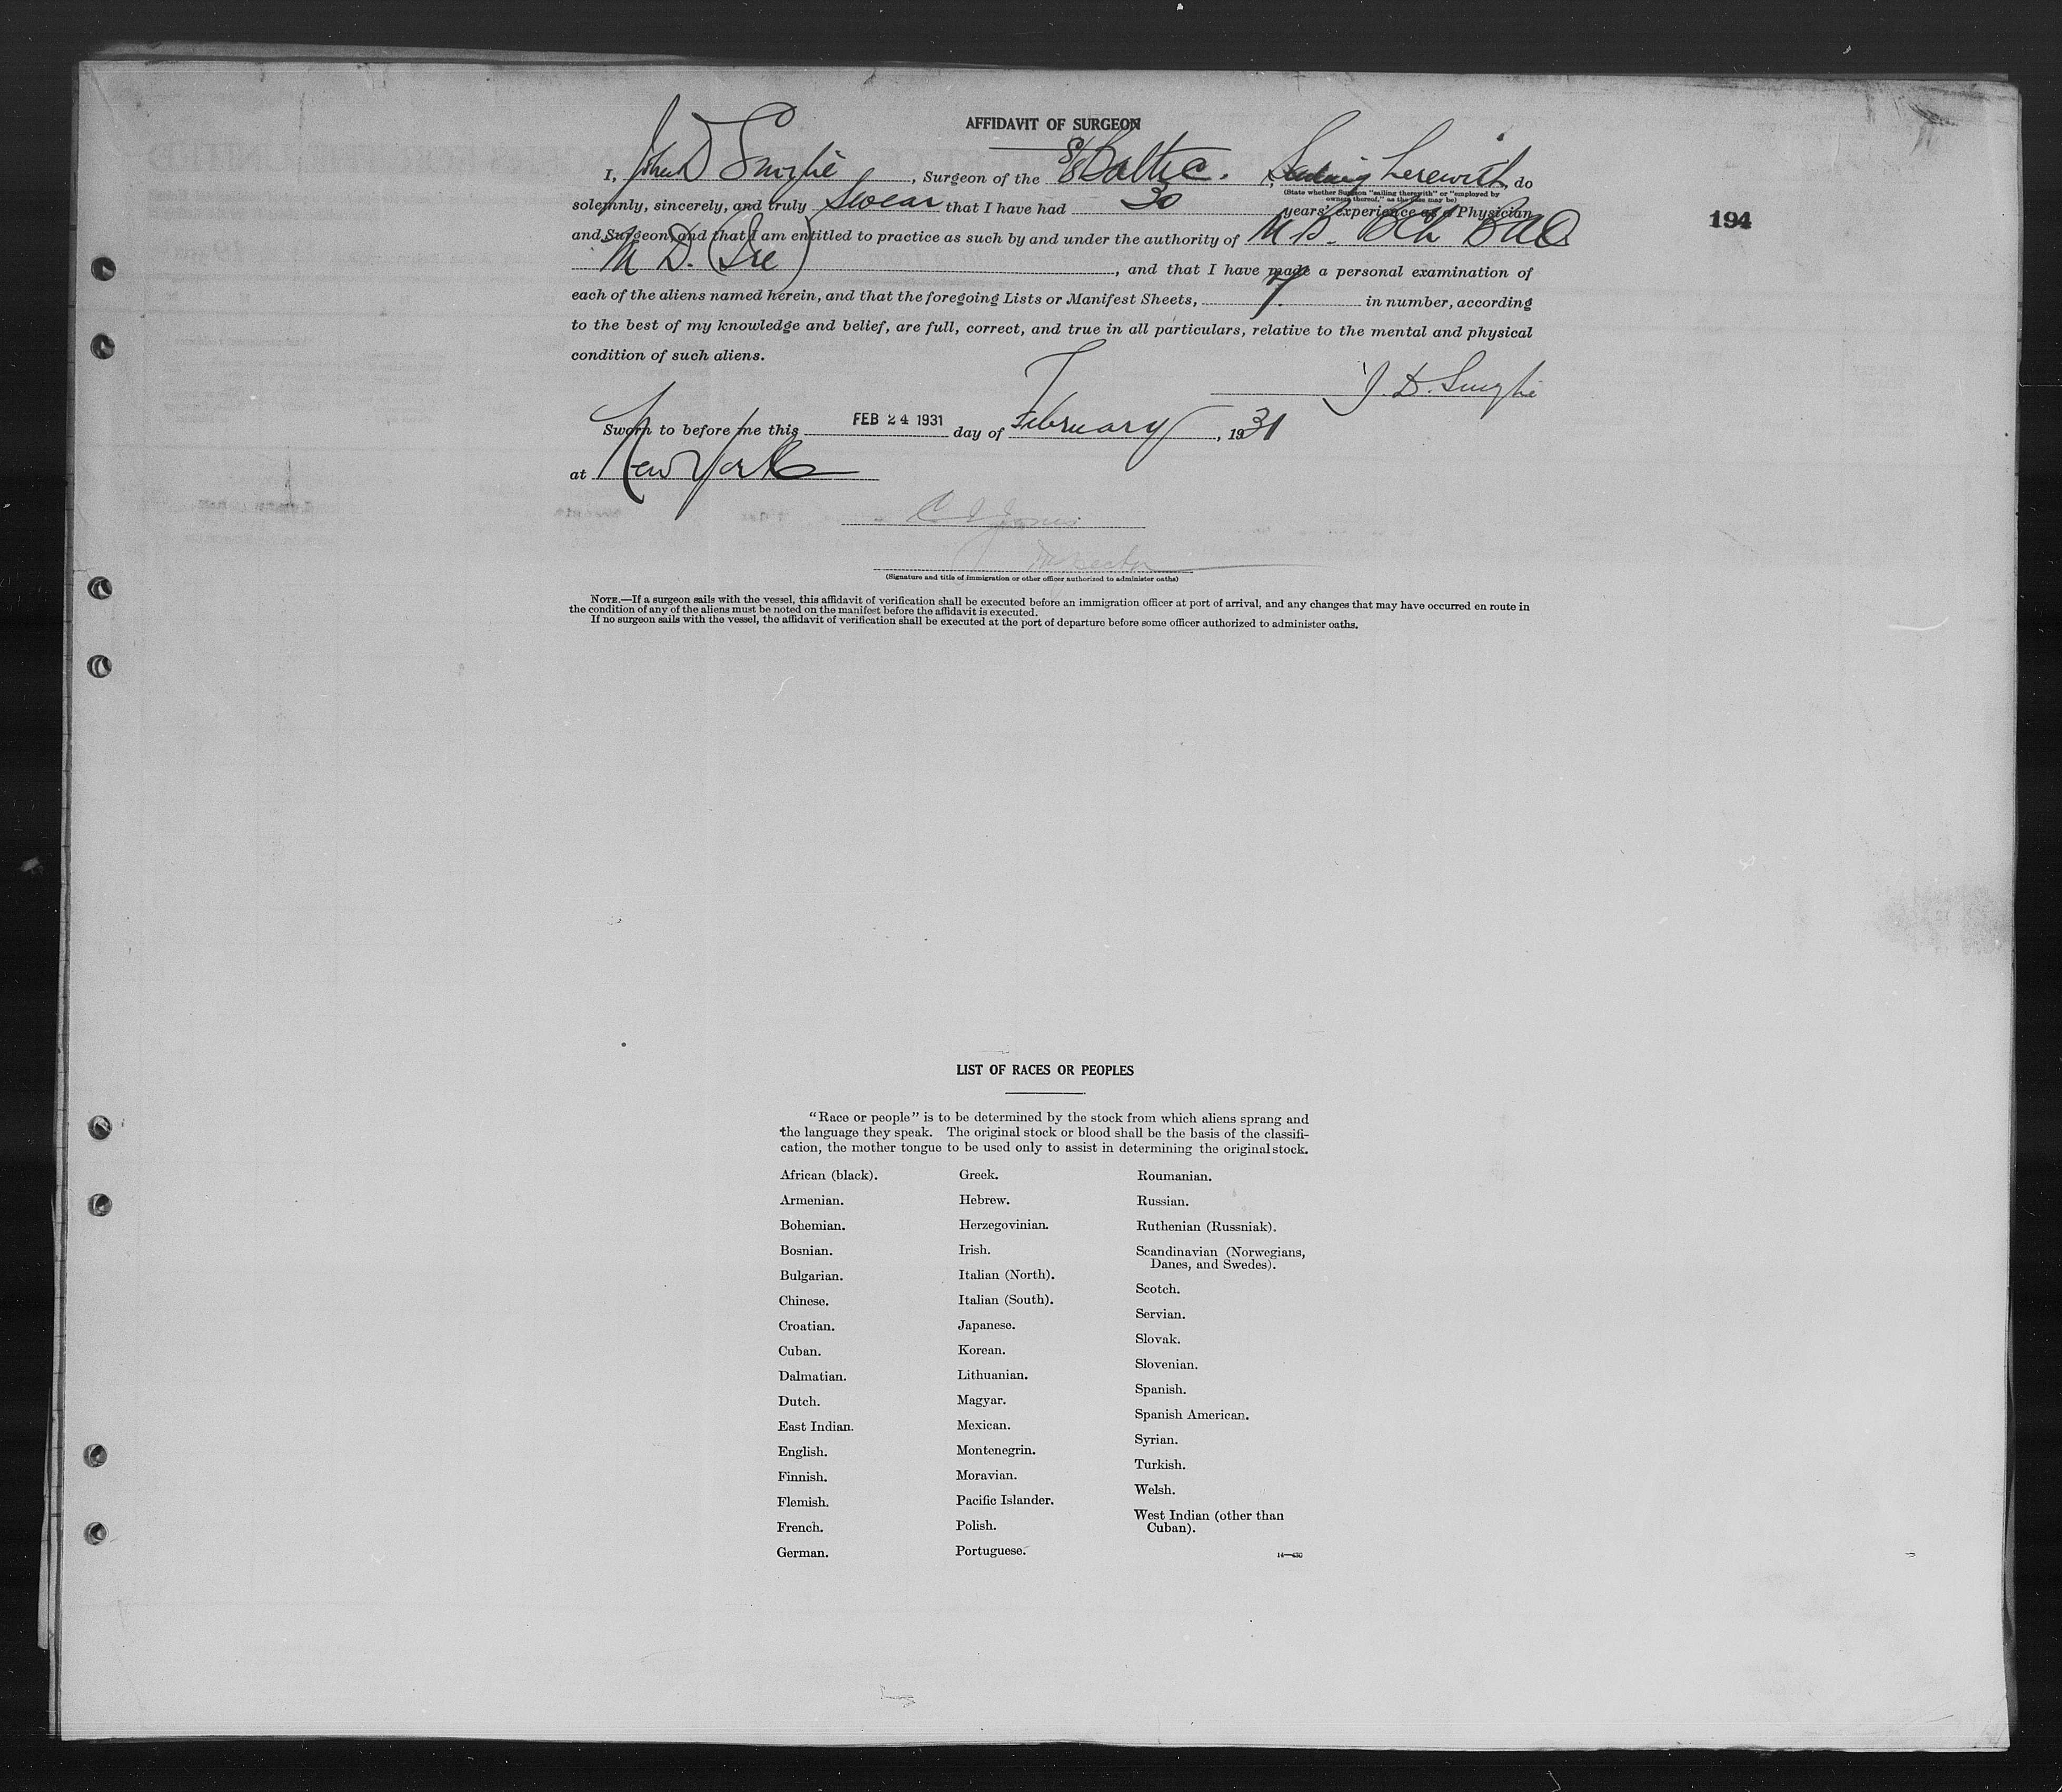 AFFIDAVIT OF SURGEON
I, John D , Surgeon of the S/S Baltic. , Sailing herewith, do
(State whether Surgeon "sailing therewith" or "employed by
owners thereof," as the case may be)
solemnly, sincerely, and truly Swear that I have had 30 years' experience as a Physician
and Surgeon, and that I am entitled to practice as such by and under the authority of M.B. BCh BAO
M D. (Ire) , and that I have made a personal examination of
each of the aliens named herein, and that the foregoing Lists or Manifest Sheets, 7. in number, according
to the best of my knowledge and belief, are full, correct, and true in all particulars, relative to the mental and physical
condition of such aliens.
J. D.
Sworn to before me this FEB 24 1931 day of February , 1931
at New York
Inspector
(Signature and title of immigration or other officer authorized to administer oaths)
NOTE.—If a surgeon sails with the vessel, this affidavit of verification shall be executed before an immigration officer at port of arrival, and any changes that may have occurred en route in
the condition of any of the aliens must be noted on the manifest before the affidavit is executed.
If no surgeon sails with the vessel, the affidavit of verification shall be executed at the port of departure before some officer authorized to administer oaths.
194
LIST OF RACES OR PEOPLES
"Race or people" is to be determined by the stock from which aliens sprang and
the language they speak. The original stock or blood shall be the basis of the classifi-
cation, the mother tongue to be used only to assist in determining the original stock.
African (black).
Armenian.
Bohemian.
Bosnian.
Bulgarian.
Chinese.
Croatian.
Cuban.
Dalmatian.
Dutch.
East Indian.
English.
Finnish.
Flemish.
French.
German.
Greek.
Hebrew.
Herzegovinian.
Irish.
Italian (North).
Italian (South).
Japanese.
Korean.
Lithuanian.
Magyar.
Mexican.
Montenegrin.
Moravian.
Pacific Islander.
Polish.
Portuguese.
Roumanian.
Russian.
Ruthenian (Russniak).
Scandinavian (Norwegians,
Danes, and Swedes).
Scotch.
Servian.
Slovak.
Slovenian.
Spanish.
Spanish American.
Syrian.
Turkish.
Welsh.
West Indian (other than
Cuban).
14—430